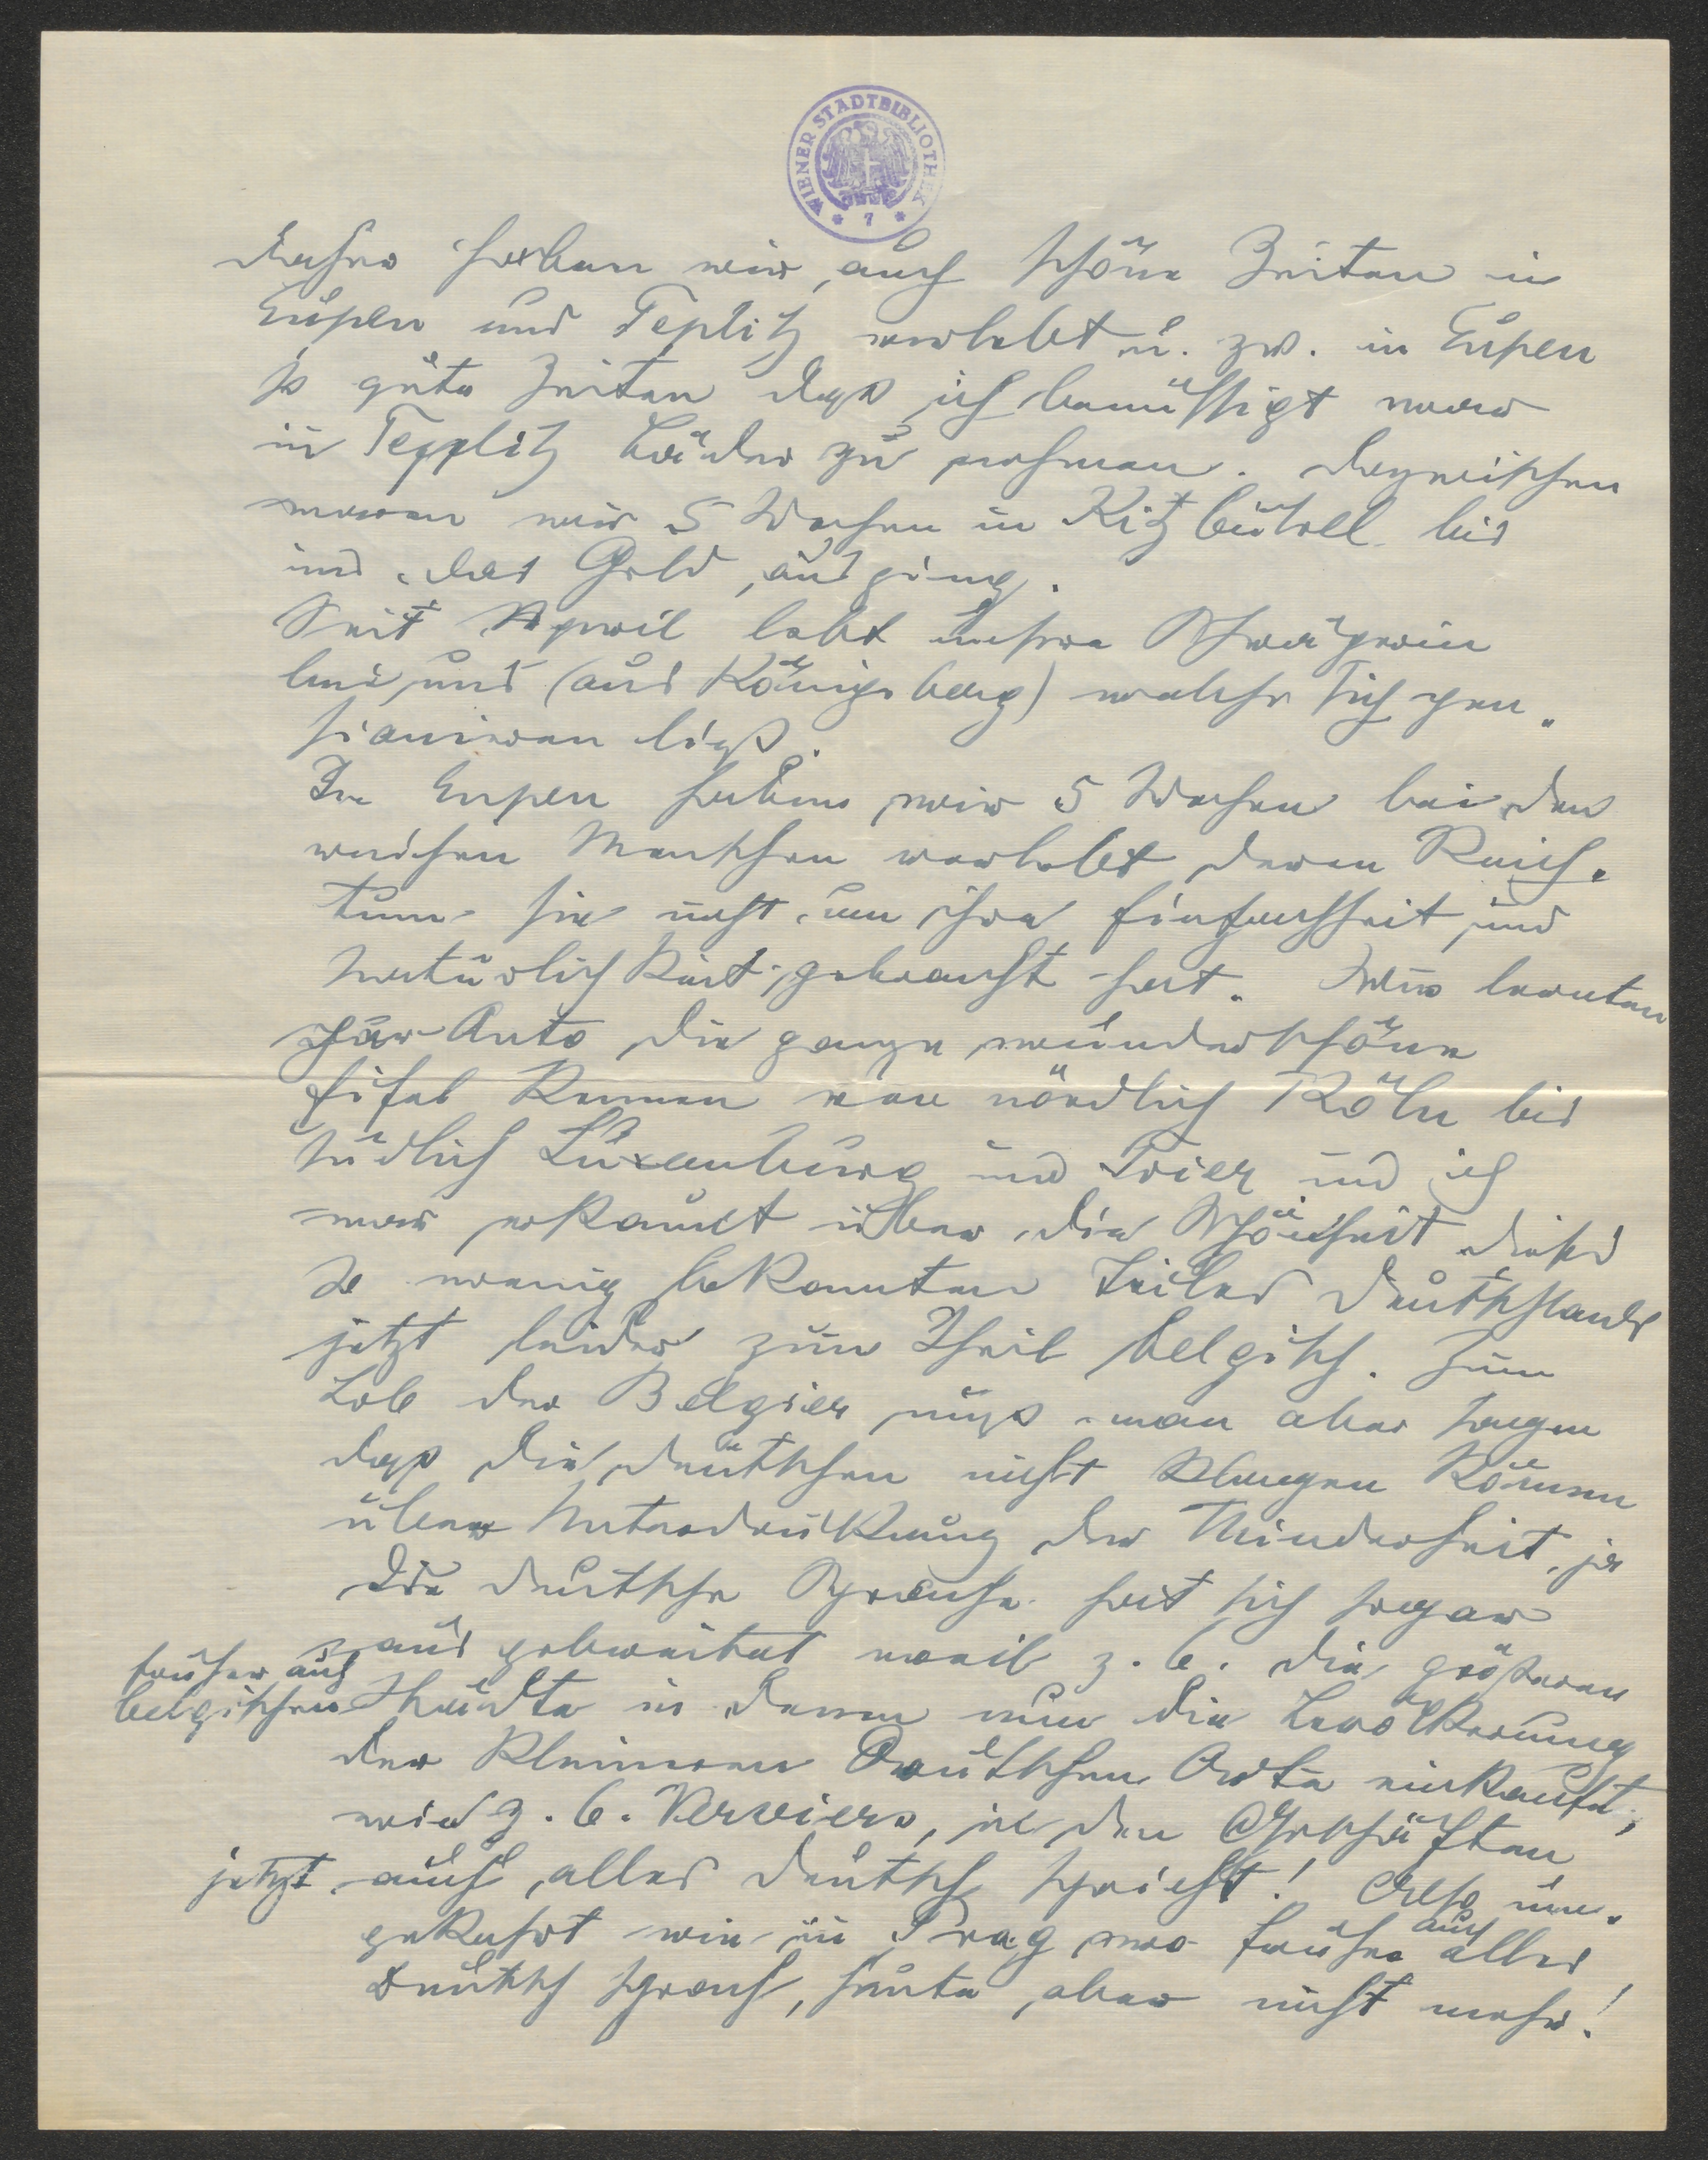 WIENER STADTBIBLIOTHEK
* 7 *
daher haben wir auch schöne Zeiten in
Eupen und Teplitz verlebt u. zw. in Eupen
so gute Zeiten dass ich bemüssigt war
in Tepplitz Bäder zu nehmen. Dazwischen
waren wir 5 Wochen in Kitzbühel bis
uns das Geld ausging.
Seit April lebt unsere Schwägerin
bei uns (aus Königsberg) welche sich pen-
sionieren liess.
In Eupen haben wir 5 Wochen bei den
reichen Menschen verlebt deren Reich-
tum sie nicht um ihre Einfachheit und
Natürlichkeit gebracht hat. Wir lernten
per Auto die ganze wunderschöne
Eifel kennen von nördlich Köln bis
südlich Luxenburg und Trier und ich
war erstaunt über die Schönheit dieses
so wenig bekannten Teiles Deutschlands
jetzt leider zum Theil belgisch. Zum
Lob der Belgier muss man aber sagen
dass die Deutschen nicht klagen können
über Unterdrückung der Minderheit, ja
die deutsche Sprache hat sich sogar
ausgebreitet weil z. b. die grösseren
früher auch
belgischen Städte in denen nun die Bevölkerung
der kleineren Deutschen Orte einkauft,
wie z. b. Verviers, in den Geschäften
jetzt auch alles deutsch spricht! Also um-
gekehrt wie in Prag wo früher auch alles
Deutsch sprach, heute aber nicht mehr!